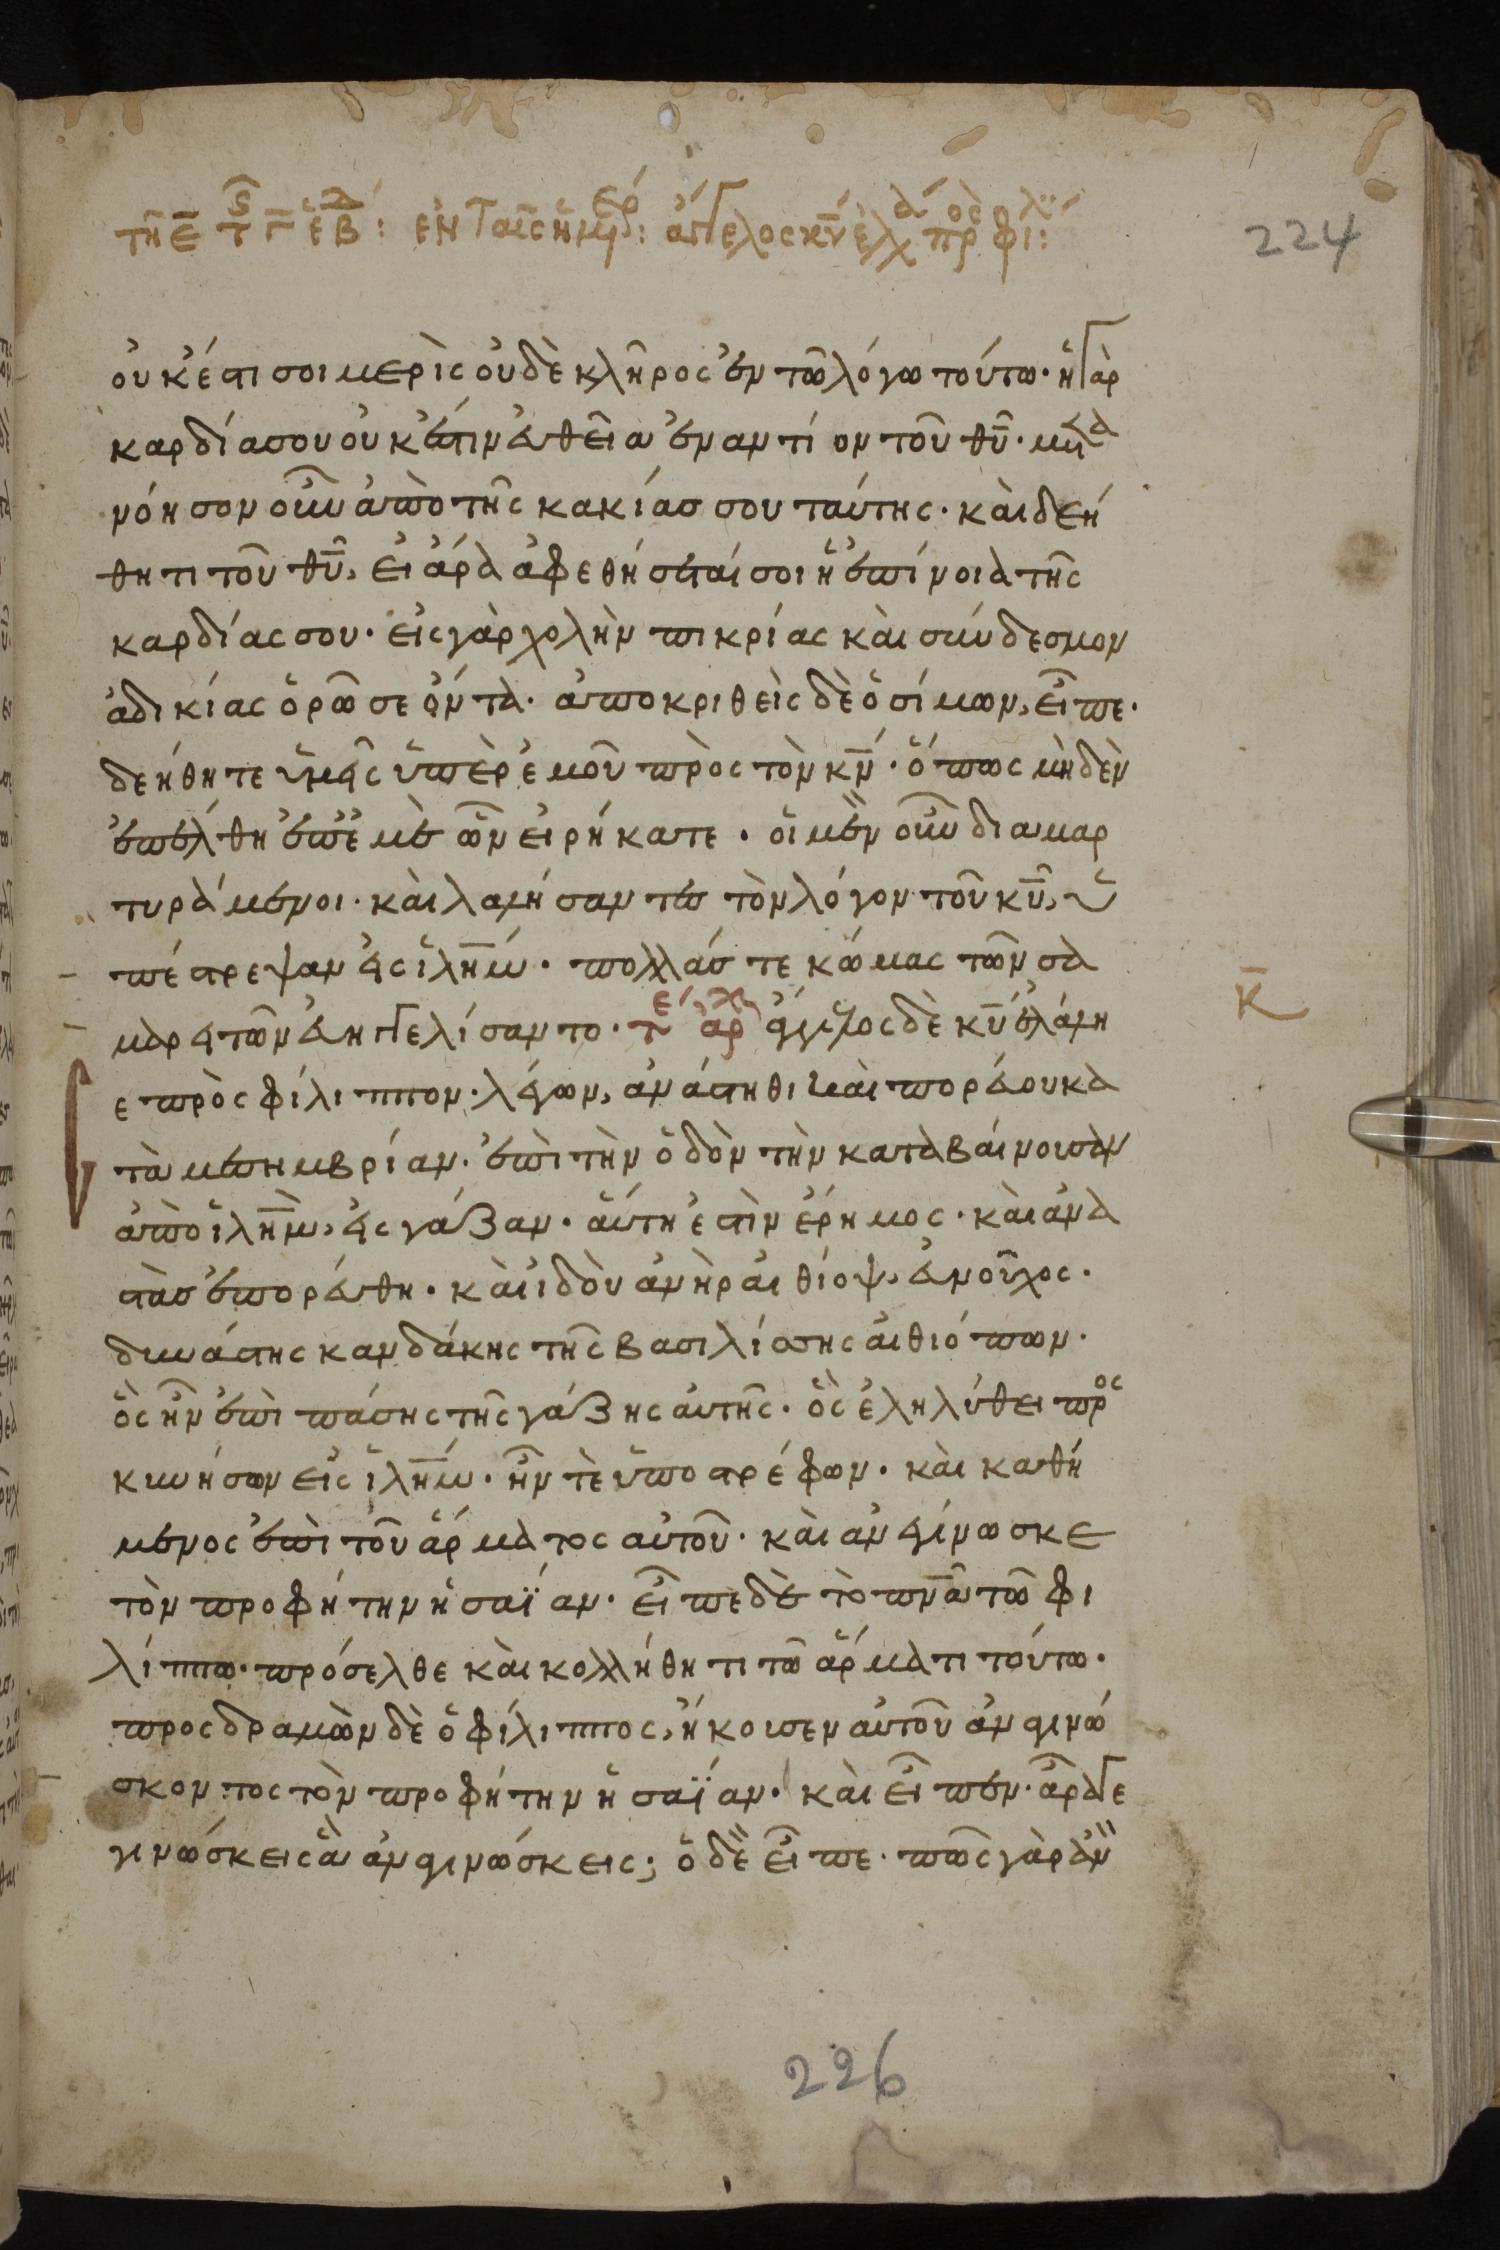 224
οὐκέστι σοι μερὶς οὐδὲ κλῆρος ἐν τῶ λόγω τούτω· ἡ γὰρ
καρδία σου οὐκ ἔστιν εὐθεῖα ἐναντίον τοῦ θῦ· μετὰ
νόησον οὖν ἀπὸ τῆς κακίασ σου ταύτης· καὶ δεή
θητι τοῦ θῦ, εἰ ἄρα ἀφεθήσεταί σοι ἡ ἐπίνοια τῆς
καρδίας σου· εἰς γὰρ χολὴν πικρίας καὶ σύνδεσμον
ἀδικίας ὁρῶ σε ὄντα· ἀποκριθεὶς δὲ ὁ σίμων, εἶπε·
δεήθητε ὑμεῖς ὑπὲρ ἐμοῦ πρὸς τὸν κν· ὅπως μὴδὲν
ἐπέλθη ἐπ' ἐμὲ ὧν εἰρήκατε· οἱ μὲν οὖν διαμαρ
τυράμενοι· καὶ λαλήσαντες τὸν λόγον τοῦ κῦ, ὑ
πέστρεψαν εἰς ἱλημ· πολλάς τε κώμας τῶν σα
μαρειτῶν εὐηγγελίσαντο· ἄγγελος δὲ κῦ ἐλάλη
κ
ε πρὸς φίλιππον· λέγων, ἀνάστηθι καὶ πορεύου κα
τὰ μεσημβρίαν· ἐπὶ τὴν ὁδὸν τὴν καταβαίνουσαν
ἀπὸ ἱλημ, εἰς γάζαν· αὕτη ἐστὶν ἔρημος· καὶ ἀνα
στὰς ἐπορεύθη· καὶ ἰδοὺ ἀνὴρ αἰθίοψ, εὐνοῦχος·
δυνάστης κανδάκης τῆς βασιλίσσης αἰθιόπων·
ὃς ἦν ἐπὶ πάσης τῆς γάζης αὐτῆς· ὃς ἐληλύθει προσ
κυνήσων εἰς ἱλημ· ἦν τὲ ὑποστρέφων· καὶ καθή
μενος ἐπὶ τοῦ ἅρματος αὐτοῦ· καὶ ἀνεγίνωσκε
τὸν προφήτην ἡσαΐαν· εἶπε δὲ τὸ πνα τῶ φι
λίππω· πρόσελθε καὶ κολλήθητι τῶ ἅρματι τούτω·
προσδραμὼν δὲ ὁ φίλιππος, ἤκουσεν αὐτοῦ ἀναγινώ
σκοντος τὸν προφήτην ἡσαΐαν· καὶ εἶπεν· ἆρά γε
γινώσκεις ἃ ἀναγινώσκεις; ὁ δὲ εἶπε· πῶς γὰρ ἂν
226